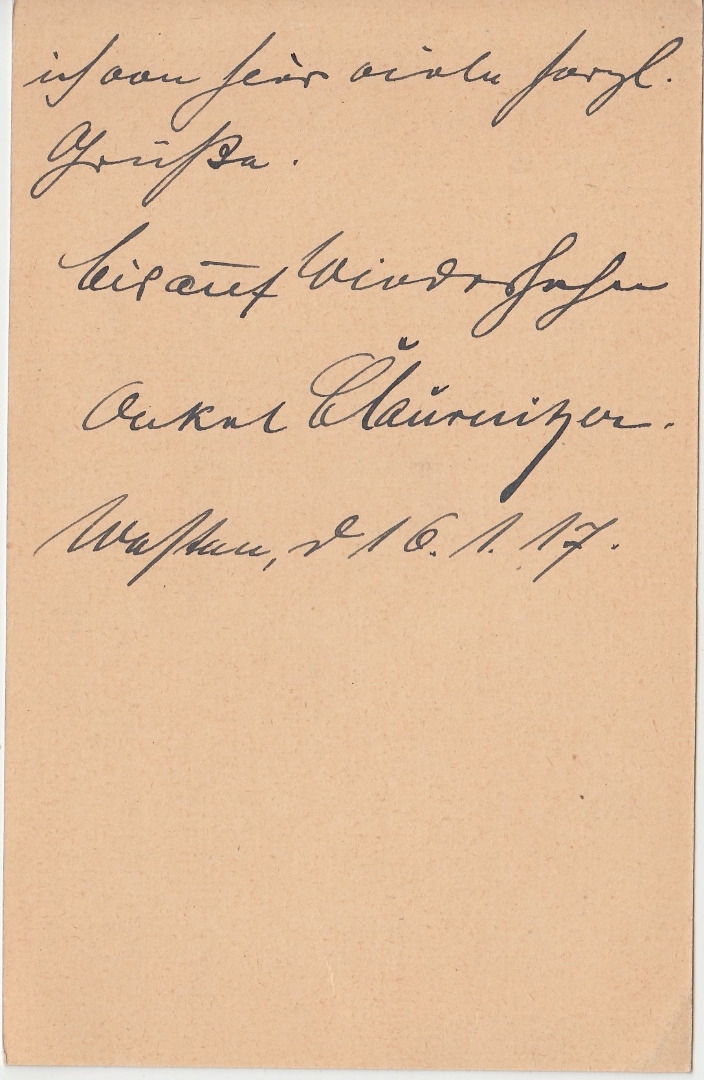 ich von hier viele herzl.
Grüße.
bis auf Wiedersehen
Onkel Claurnitzer.
Westen, d 16. 1. 17.